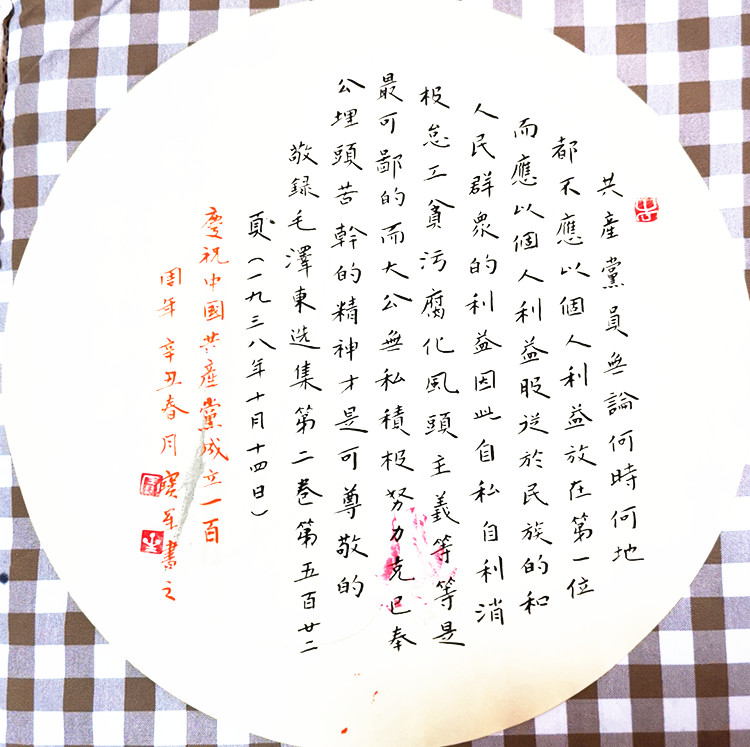 共產黨員無論何時何地
都不應以個人利益放在第一位
而應以個人利益服從於民族的和
人民群眾的利益因此自私自利消
极怠工貪污腐化風頭主義等等是
最可鄙的而大公無私積极努力克己奉
公埋頭苦幹的精神才是可尊敬的
敬録毛澤東选集第二卷第五百廿二
頁(一九三八年十月十四日)
慶祝中國共產黨成立一百
周年辛丑春月寶至書之